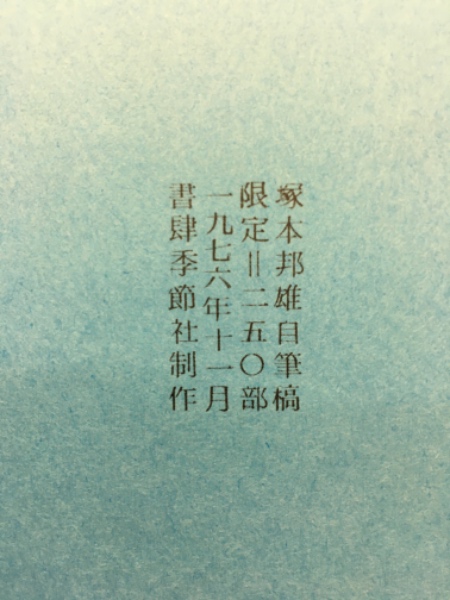 塚本邦雄自筆槁
限定＝二五〇部
一九七六年十一月
書肆季節社制作